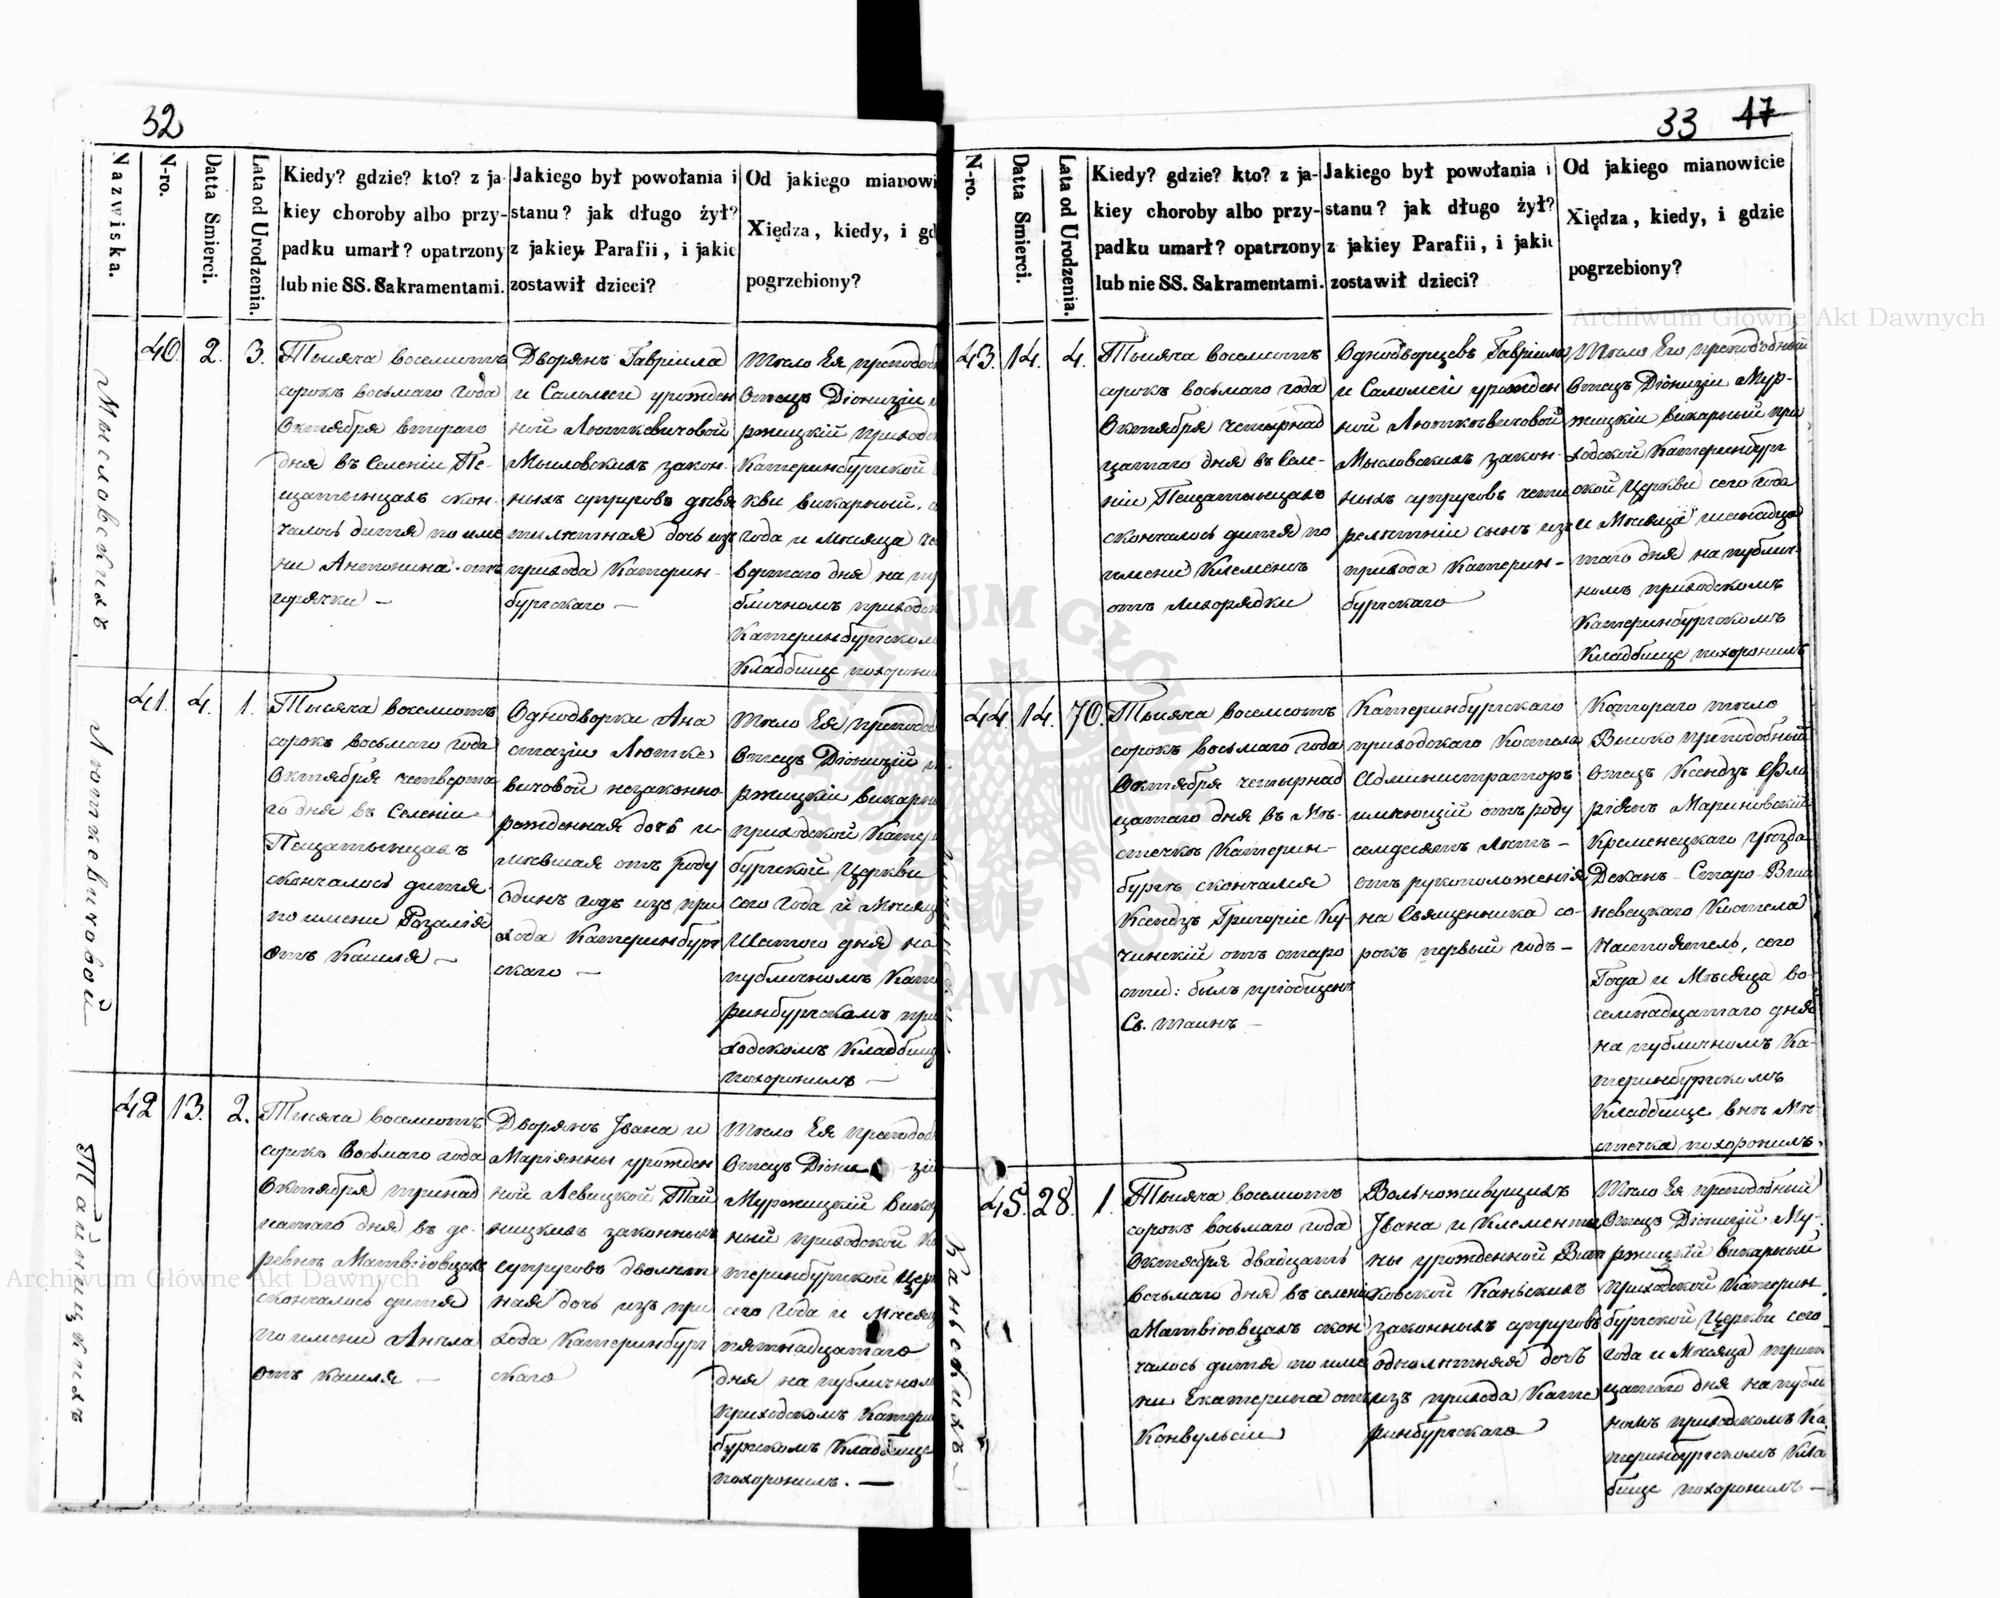 32
Nazwiska.
N-ro.
Datta Smierci.
Lata od Urodzenia.
Kiedy? gdzie? kto? z ja-
kiey choroby albo przy-
padku umarł? opatrzony
lub nie SS. Sakramentami.
Jakiego był powołania i
stanu? jak długo żył?
z jakiey Parafii, i jakie
zostawił dzieci?
Od jakiego mianowi
Xiędza, kiedy, i gd
pogrzebiony?
Мысловскихъ
40. 2. 3.
Тысяча восемсотъ
сорокъ восьмаго года
Октября втораго
дня въ Селеніи Пе-
щатынцахъ скон-
чалось дитя по име
ни Антонина отъ
горячки —
Дворянъ Гавриила
и Саломеи урожден
ной Люткевичовой
Мысловскихъ закон-
ныхъ супруговъ
дочь изъ
прихода Катерин-
бургскаго —
Тѣло Ея преподоб
Отецъ Діонизій
ржицкій приход
Катеринбургской
кви викарный, с
года и Мѣсяца че
вертаго дня на пу
бличномъ приход
Катеринбургском
Кладбище похорони
Люткевичовой
41. 4. 1.
Тысяча восемсотъ
сорокъ восьмаго года
Октября четверта
го дня въ Селеніи
Пещатынцахъ
скончалось дитя
по имени Розалія
отъ Кашля —
Однодворки Ана
стазіи Лютке
вичовой незаконно-
рожденная дочь и
мѣвшая отъ роду
Одинъ годъ изъ при
хода Катеринбург
скаго —
Тѣло Ея преподоб
Отецъ Діонизій
ржицкій викарн
приходской Катер
бургской Церкви
сего Года и Мѣсяц
Шестого дня на
публичномъ Кате
ринбургскомъ при
ходскомъ Кладбищ
похоронилъ —
Тайницкихъ
42 13. 2.
Тысяча восемсотъ
сорокъ Восьмаго года
Октября тринад
цатаго дня въ де-
ревнѣ Матвіовцахъ
скончалось дитя
по имени Ангела
отъ кашля —
Дворянъ Ивана и
Маріянны урожден
ной Левицкой Тай
ницкихъ законныхъ
супруговъ дволѣт
ная дочь изъ при
хода Катеринбург
скаго
Тѣло Ея преподоб
Отецъ Діони — зій
Муржицкій Викар
ный приходской Ка
теринбургской Церк
сего Года и Мѣсяц
пятнадцатаго
дня на публичном
приходскомъ Катери
бургскомъ Кладбище
похоронилъ. —
33 17
N-ro.
Datta Smierci.
Lata od Urodzenia.
Kiedy? gdzie? kto? z ja-
kiey choroby albo przy-
padku umarł? opatrzony
lub nie SS. Sakramentami.
Jakiego był powołania i
stanu? jak długo żył?
z jakiey Parafii, i jakie
zostawił dzieci?
Od jakiego mianowicie
Xiędza, kiedy, i gdzie
pogrzebiony?
43. 14. 4.
Тысяча восемсотъ
сорокъ восьмаго года
Октября четырнад
цатаго дня въ Селе-
ніи Пещатынцахъ
скончалось дитя по
имени Клеменсъ
отъ лихорядки
Однодворцевъ Гавриила
и Саломеіи урожден
ной Люткевичовой
Мысловскихъ закон-
ныхъ супруговъ четы
релѣтній сынъ изъ
прихода Катерин-
бургскаго
Тѣло Его преподобный
Отецъ Діонизіи Мур-
жицкіи викарный при
ходской Катеринбург
ской Церкви сего Года
и Мѣсяца
таго дня на публич-
номъ приходскомъ
Катеринбургскомъ
Кладбище похоронилъ
44. 14. 70.
Тысяча восемсотъ
сорокъ восьмаго года
Октября четырнад
цатаго дня въ Мѣ-
стечкѣ Катерин-
бургъ скончался
Ксендзъ Григоріе Ку-
чинскій отъ старо
сти: былъ пріобщенъ
Св. таинъ —
Катеринбургскаго
приходскаго Костела
Администраторъ
имѣющій отъ роду
семдесятъ лѣтъ —
отъ рукоположенія
на Священника со-
рокъ первый годъ —
Котораго тѣло
Высоко преподобный
отецъ Ксендзъ Фло
ріянъ Мариновскій
Кременецкаго Уѣзда
Деканъ — Старо-Виш
невецкаго Костела
Настоятель, сего
Года и Мѣсяца во-
семнадцатаго дня
на публичномъ Ка-
теринбургскомъ
Кладбище внѣ Мѣ-
стечка похоронилъ.
Каньскихъ
45. 28. 1.
Тысяча восемсотъ
сорокъ восьмаго года
Октября двадцать
восьмаго дня въ селеніи
Матвіовцахъ скон
чалось дитя по име
ни Екатерина отъ
Конвульсіи
Вольноживущихъ
Ивана и Клементи
ны урожденной Вит
ковской Каньскихъ
законныхъ супруговъ
однолѣтняя дочь
изъ прихода Кате
ринбургскаго
Тѣло Ея преподобный
Отецъ Діонизій Му-
ржицкій викарный
приходской Катерин-
бургской Церкви сего
года и Мѣсяца трит
цатаго дня на публи
номъ приходскомъ Ка
теринбургскомъ Клад
бище похоронилъ —
Archiwum Główne Akt Dawnych
Archiwum Główne Akt Dawnych